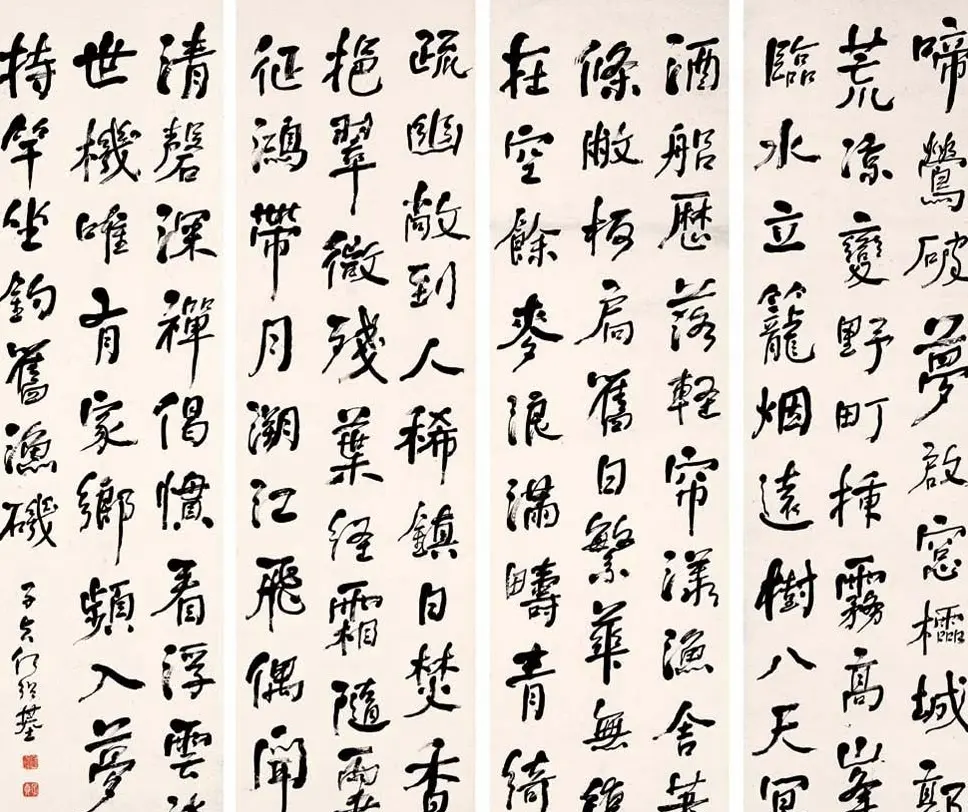 啼鶯破夢啟窓櫺城郭
荒涼變野町挿霧高峯
臨水立籠烟遠樹入天
酒船歷落軽帘漾漁舍
條敝板扃舊日繁華無
在空餘麥浪滿疇青綺
疏幽敞到人稀鎮日焚香
挹翠微殘葉経霜隨雨
征鴻帶月溯江飛偶聞
清磬深禪偈慣看浮雲
世機唯有家鄉頻入夢
持竿坐釣舊漁磯
子貞何紹基